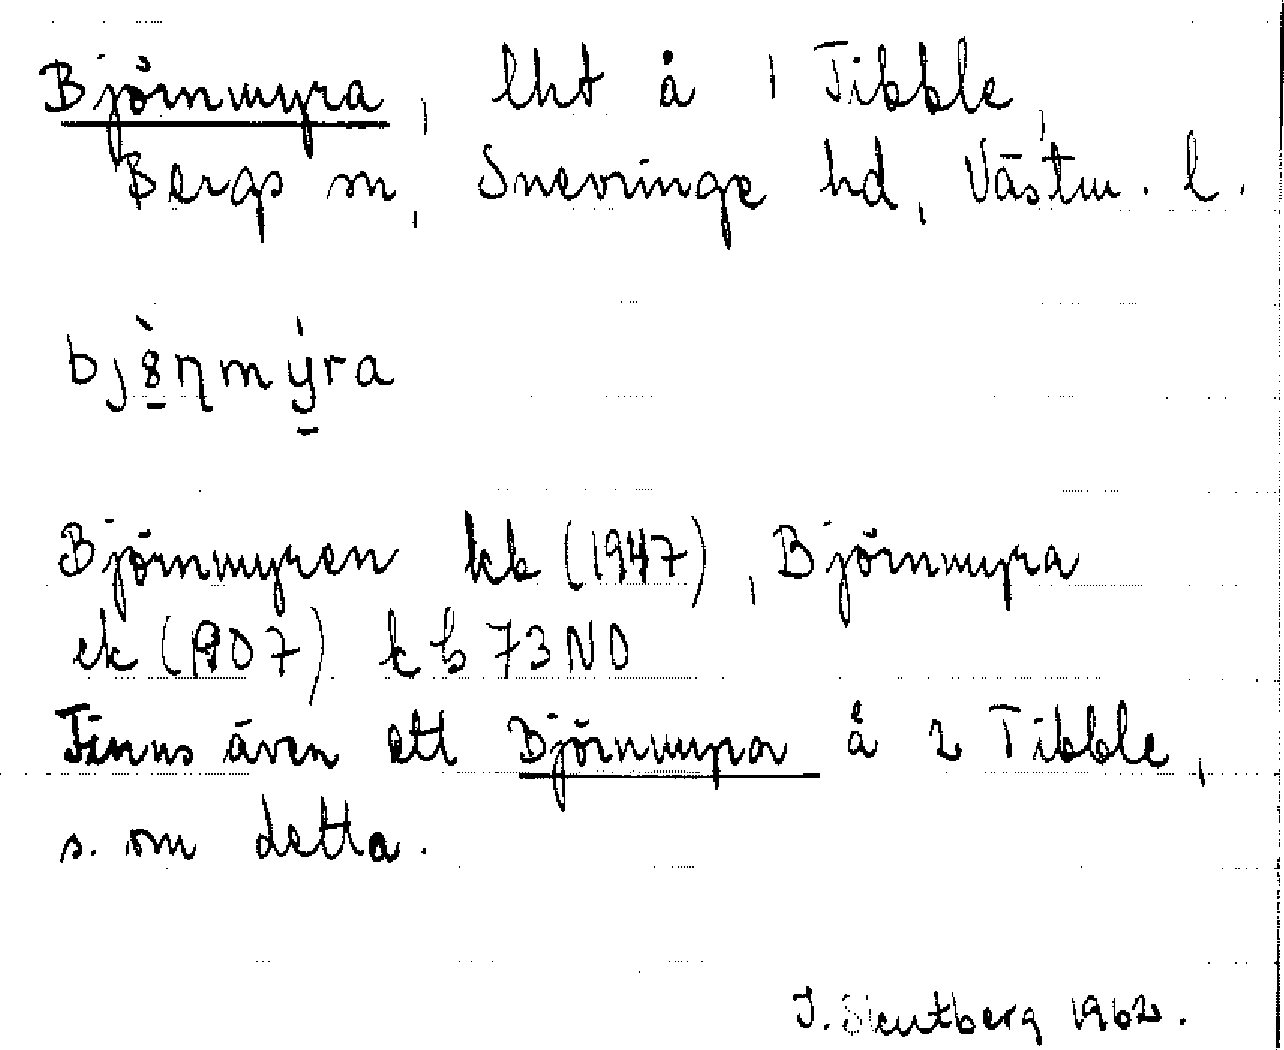 Björnmyra, lht å 1 Tibble,
Bergs sn, Snevringe hd, Västm. l.
bjö̀ṇmýra
Björnmyren kk (1947), Björnmyra
ek (1907) kb 73 NO
Finns även ett Björnmyra å 2 Tibble,
s. om detta.
I. Skutberg 1962.